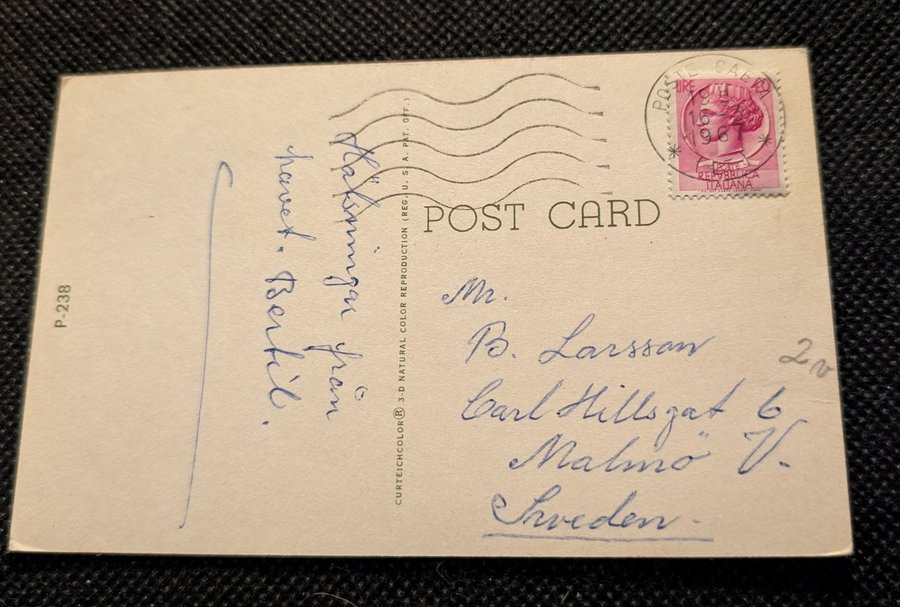 Hälsningar från
havet. Bertil.
P-238
CURTEICHCOLOR® 3-D NATURAL COLOR REPRODUCTION (REG. U. S. A. PAT. OFF.)
POST CARD
LIRE 40
POSTE
16
1967
POSTE
REPVBBLICA
ITALIANA
Mr.
B. Larsson
Carl Hillsgat 6
Malmö V.
Sweden.
2